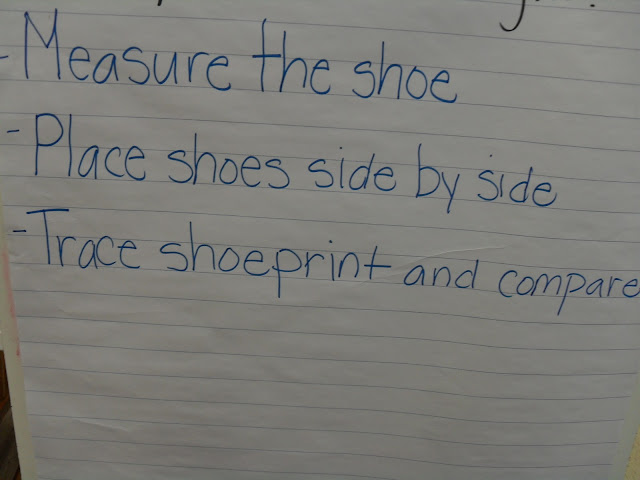 - Measure the shoe
- Place shoes side by side
- Trace shoeprint and compare